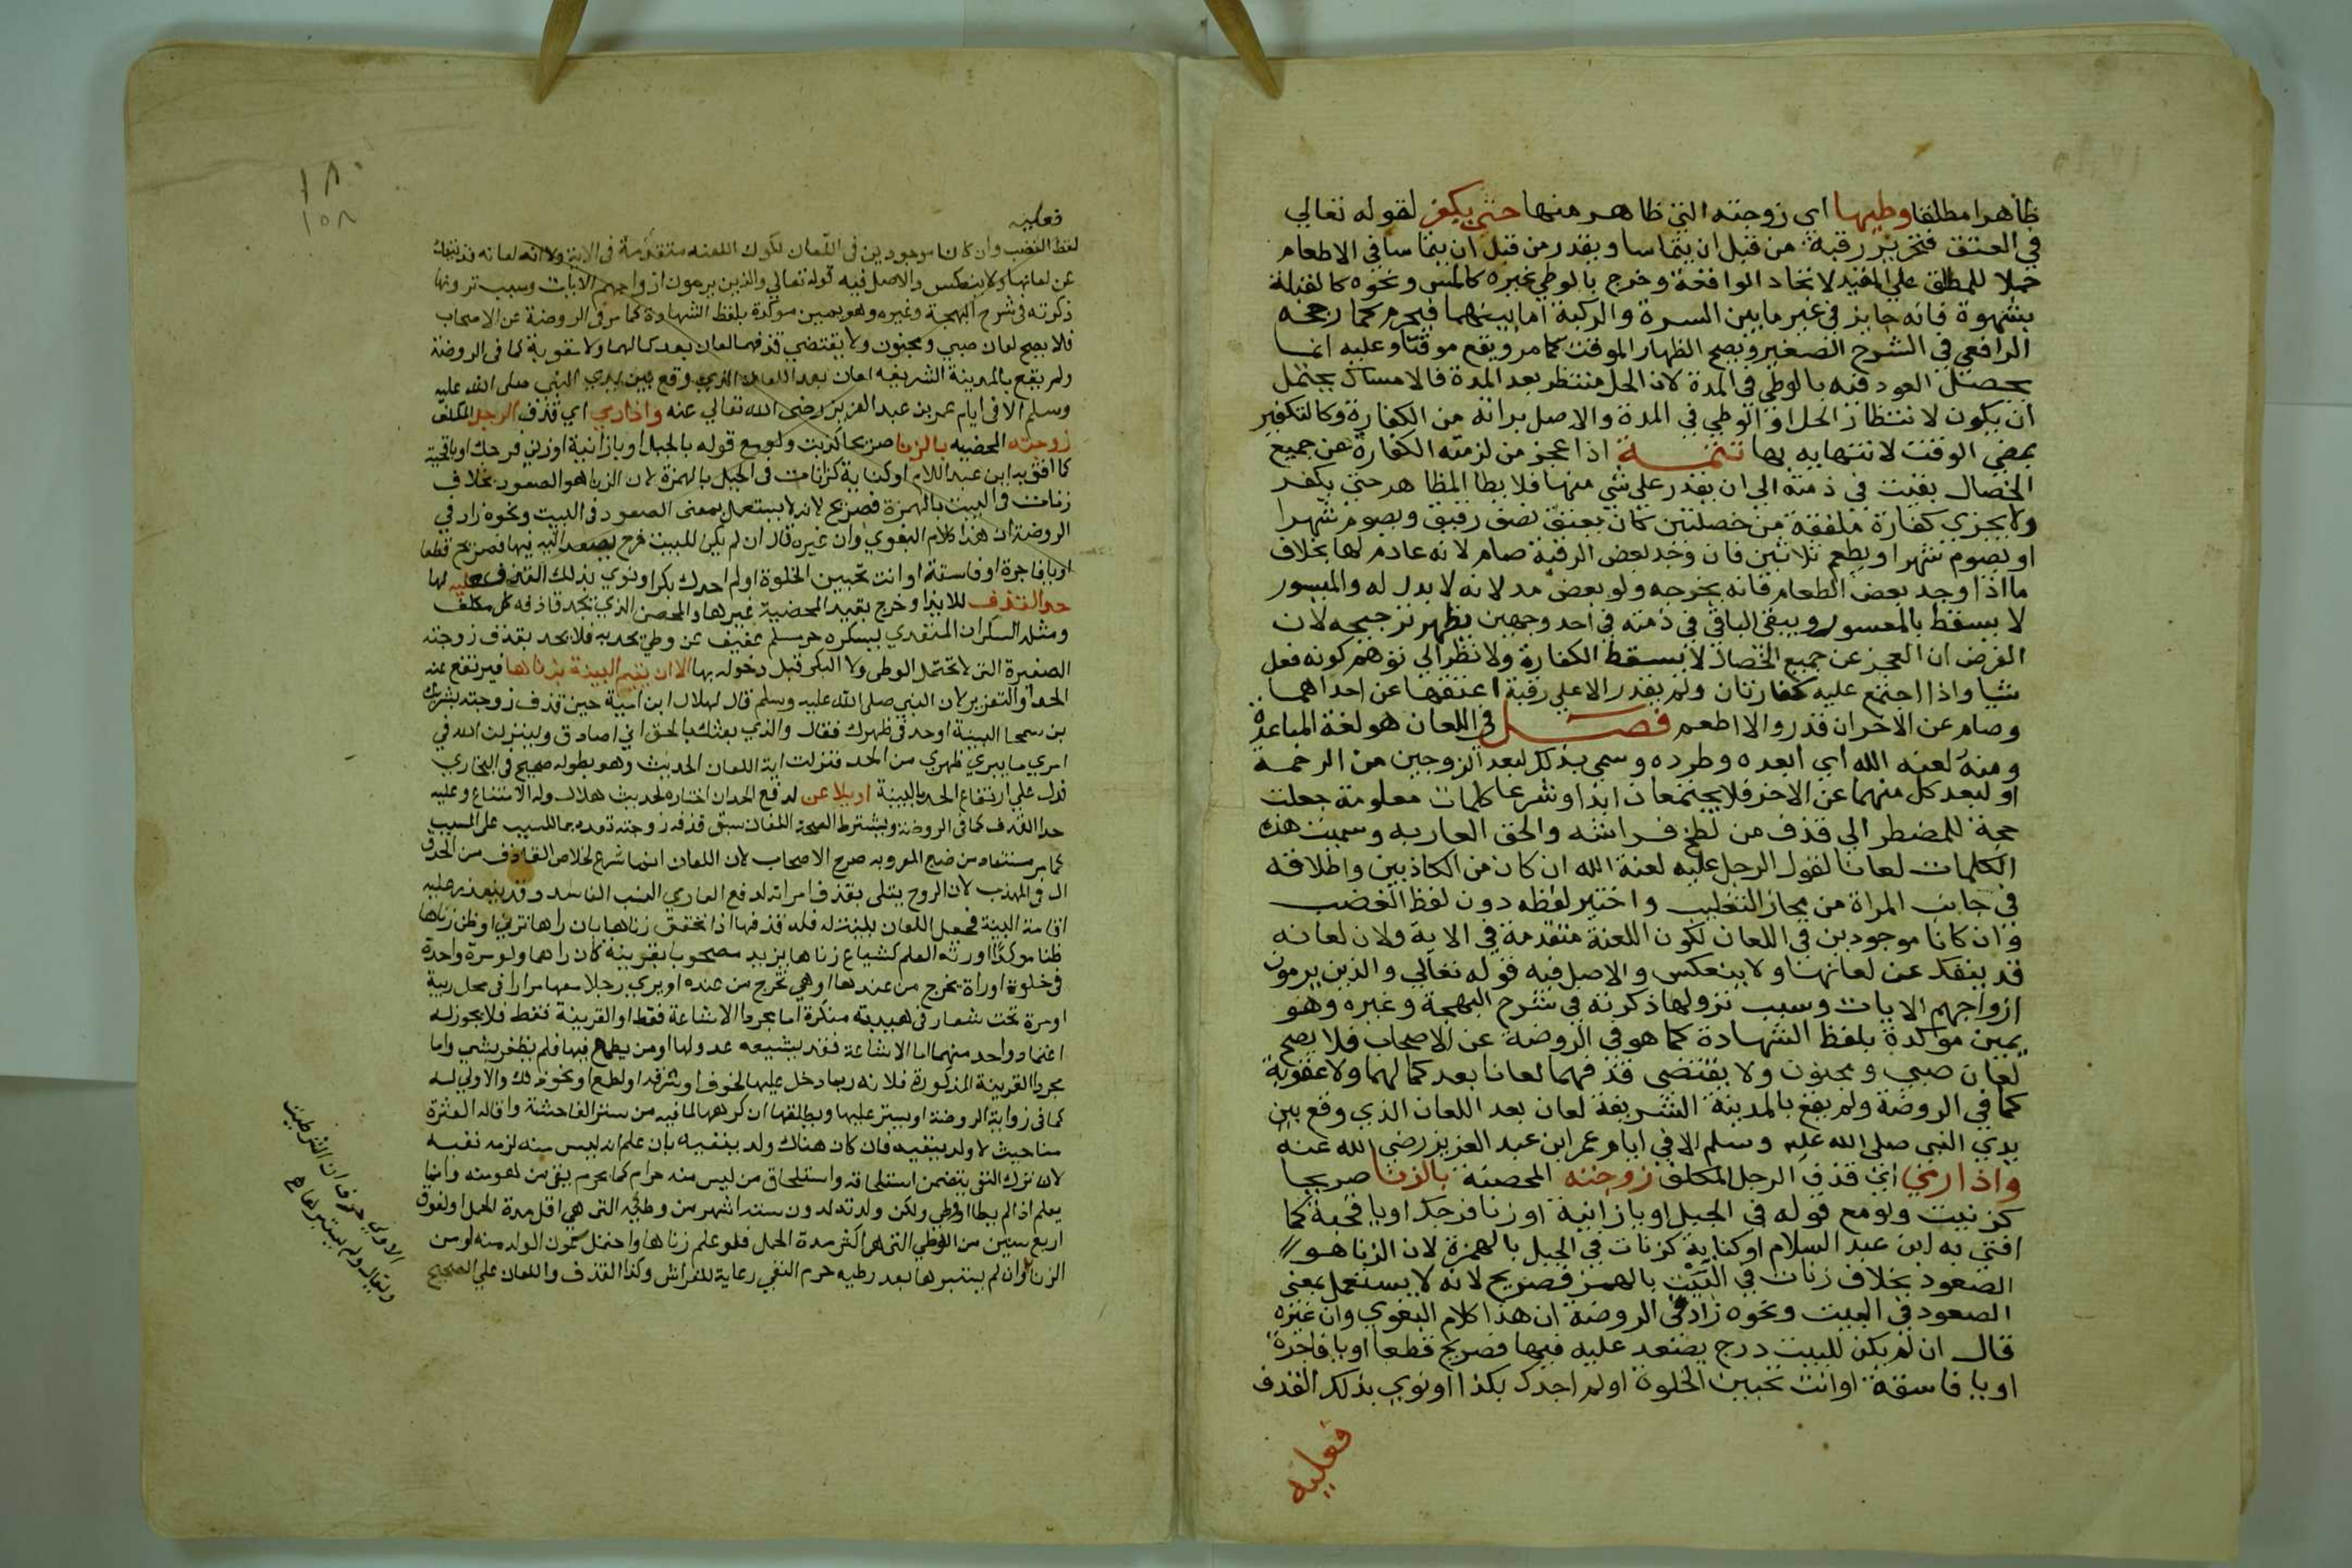 ظاهرا مطلقا وطيها اى زوجته التي ظاهر منها حتي يكفر لقوله تعالي
في العتق فتحرير رقبة من قبل ان يتماسا ويقدر من قبل ان يتماسا في الاطعام
حملا للمطلق علي المقيد لاتحاد الواقعة وخرج بالوطي غيره كالمس ونحوه كالقبلة
بشهوة فانه جايز في غير ما بين السرة والركبة اما بينهما فيحرم كما رجحه
الرافعي في الشرح الصغير ويصح الظهار الموقت كما مر ويقع موقتا وعليه انما
يحصل العود فيه بالوطي في المدة لان الحل منتظر بعد المدة فالامساك يحتمل
ان يكون لانتظار الحل او الوطي في المدة والاصل براته من الكفارة وكالتكفير
بمضي الوقت لانتهايه بها تتمة اذا عجز من لزمته الكفارة عن جميع
الخصال بقيت في ذمته الي ان يقدر علي شي منها فلا يطا المظاهر حتي يكفر
ولا يجزي كفارة ملفقة من خصلتين كان يعتق نصف رقيق ويصوم شهرا
او يصوم شهرا ويطعم ثلاثين فان وجد بعض الرقبة صام لانه عادم لها بخلاف
ما اذا وجد بعض الطعام فانه يخرجه ولو بعض مد لانه لا بدل له والميسور
لا يسقط بالمعسور ويبقي الباقي في ذمته في احد وجهين يظهر ترجيحه لان
الفرض ان العجز عن جميع الخصال لا يسقط الكفارة ولا نظر الي توهم كونه فعل
شيا واذا اجتمع عليه كفارتان ولم يقدر الا علي رقبة اعتقها عن احداهما
وصام عن الاخر ان قدر والا اطعم فصل في اللعان هو لغة المباعدة
ومنه لعنه الله اي ابعده وطرده وسمي بذلك لبعد الزوجين من الرحمة
او لبعد كل منهما عن الاخر فلا يجتمعان ابدا وشرعا كلمات معلومة جعلت
حجة للمضطر الي قذف من لطخ فراشه والحق العار به وسميت هذه
الكلمات لعانا لقول الرجل عليه لعنة الله ان كان من الكاذبين واطلاقه
في جانب المراة من مجاز التغليب واختير لفظه دون لفظ الغضب
وان كانا موجودين في اللعان لكون اللعنة متقدمة في الاية ولان لعانه
قد ينفك عن لعانها ولا ينعكس والاصل فيه قوله تعالي والذين يرمون
ازواجهم الايات وسبب نزولها ذكرته في شرح البهجة وغيره وهو
يمين موكدة بلفظ الشهادة كما هو في الروضة عن الاصحاب فلا يصح
لعان صبي ومجنون ولا يقتضي قذفهما لعانا بعد كمالهما ولا عقوبة
كما في الروضة ولم يقع بالمدينة الشريفة لعان بعد اللعان الذي وقع بين
يدي النبي صلى الله عليه وسلم الا في ايام عمر ابن عبد العزيز رضي الله عنه
واذا رمي اي قذف الرجل المكلف زوجته المحصنة بالزنا صريحا
كزنيت ولو مع قوله في الجبل او يا زانية او زنا فرجك او يا قحبة كما
افتي به ابن عبد السلام او كناية كزنات في الجبل بالهمزة لان الزنا هو
الصعود بخلاف زنات في البيت بالهمز فصريح لانه لا يستعمل بمعني
الصعود في البيت ونحوه زاد في الروضة ان هذا كلام البغوي وان غيره
قال ان لم يكن للبيت درج يصعد عليه فيها فصريح قطعا او يا فاجرة
او يا فاسقة او انت تحبين الخلوة او لم اجدك بكرا او نوي بذلك القذف
فعليه
١٨٠
١٥٨
فعليه
لفظ الغضب وان كانا موجودين فى اللعان لكون اللعنه متقدمة فى الاية ولانه لعانه قد ينفك
عن لعانها ولا ينعكس والاصل فيه قوله تعالي والذين يرمون ازواجهم الايات وسبب نزولها
ذكرته فى شرح البهجة وغيره وهو يمين موكدة بلفظ الشهادة كما مر فى الروضة عن الاصحاب
فلا يصح لعان صبي ومجنون ولا يقتضي قذفهما لعان بعد كمالهما ولا عقوبة كما فى الروضة
ولم يقع بالمدينة الشريفه لعان بعد اللعان الذي وقع بين يدي النبي صلى الله عليه
وسلم الا فى ايام عمر بن عبد العزيز رضى الله تعالي عنه واذا رمي اي قذف الرجل المكلف
زوجته المحصنه بالزنا صريحا كزنيت ولو مع قوله بالجبل او يا زانية او زنى فرجك او يا قحبة
كما افتي به ابن عبد السلام او كناية كزنات فى الجبل بالهمزة لان الزنا هو الصعود بخلاف
زنات فى البيت بالهمزة فصريح لانه لا يستعمل بمعنى الصعود فى البيت ونحوه زاد في
الروضة ان هذا كلام البغوي وان غيره قال ان لم يكن للبيت درج يصعد اليه فيها فصريح قطعا
او يا فاجرة او فاسقة او انت تحبين الخلوة او لم اجدك بكرا ونوي بذلك القذف فعليه لها
حد القذف للايذا وخرج بقيد المحصنة غيرها والمحصن الذي يحد قاذفه كل مكلف
ومثله السكران المتعدي بسكره حر مسلم عفيف عن وطي يحد به فلا يحد بقذف زوجته
الصغيرة التى لا تحتمل الوطى ولا البكر قبل دخوله بها الا ان يقيم البينة بزناها فيرتفع عنه
الحد او التعزير لان النبي صلى الله عليه وسلم قال لهلال ابن امية حين قذف زوجته بشريك
بن سمحا البينة او حد فى ظهرك فقال والذي بعثك بالحق اني لصادق ولينزلن الله في
امري ما يبري ظهري من الحد فنزلت اية اللعان الحديث وهو بطوله صحيح فى البخاري
فدل علي ارتفاع الحد بالبينة او يلاعن لدفع الحد ان اختاره لحديث هلال وله الامتناع وعليه
حد القذف كما فى الروضة ويشترط لصحة اللعان سبق قذفه زوجته تقديما للسبب على المسبب
كما هو مستفاد من صنيع المص وبه صرح الاصحاب لان اللعان انما شرع لخلاص القاذف من الحد
ال فى المهذب لان الزوج يبتلى بقذف امراته لدفع العار والنسب الفاسد وقد يتعذر عليه
اقامة البينة فجعل اللعان بينة له فله قذفها اذا تحقق زناها بان راها تزني او ظن زناها
ظنا موكدا اورثه العلم كشياع زناها بزيد مصحوب بقرينة كان راهما ولو مرة واحدة
فى خلوة او راه يخرج من عندها او هي تخرج من عنده او يري رجلا معها مرارا فى محل ريبة
او مرة تحت شعار فى هيية منكرة اما مجرد الاشاعة فقط او القرينة فقط فلا يجوز له
اعتماد واحد منهما اما الاشاعة فقد يشيعه عدو لها او من يطمع فيها فلم يظفر بشي واما
مجرد القرينة المذكورة فلانه ربما دخل عليها لخوف او سرقه او لطمع او نحو ذلك والاولي له
كما فى زوايد الروضة ان يستر عليها ويطلقها ان كرهها لما فيه من ستر الفاحشة واقالة العثرة
هنا حيث لا ولد ينفيه فان كان هناك ولد ينفيه بان علم انه ليس منه لزمه نفيه
لان ترك النفي يتضمن استلحاقه واستلحاق من ليس منه حرام كما يحرم نفي من هو منه وانما
يعلم اذا لم يطا او وطي ولكن ولدته لدون ستة اشهر من وطئه التى هي اقل مدة الحمل او لفوق
اربع سنين من الوطي التى هى اكثر مدة الحمل فلو علم زناها واحتمل كون الولد منه او من
الزنا وان لم يستبرها بعد وطيه حرم النفي رعاية للفراش وكذا القذف واللعان علي الصحيح